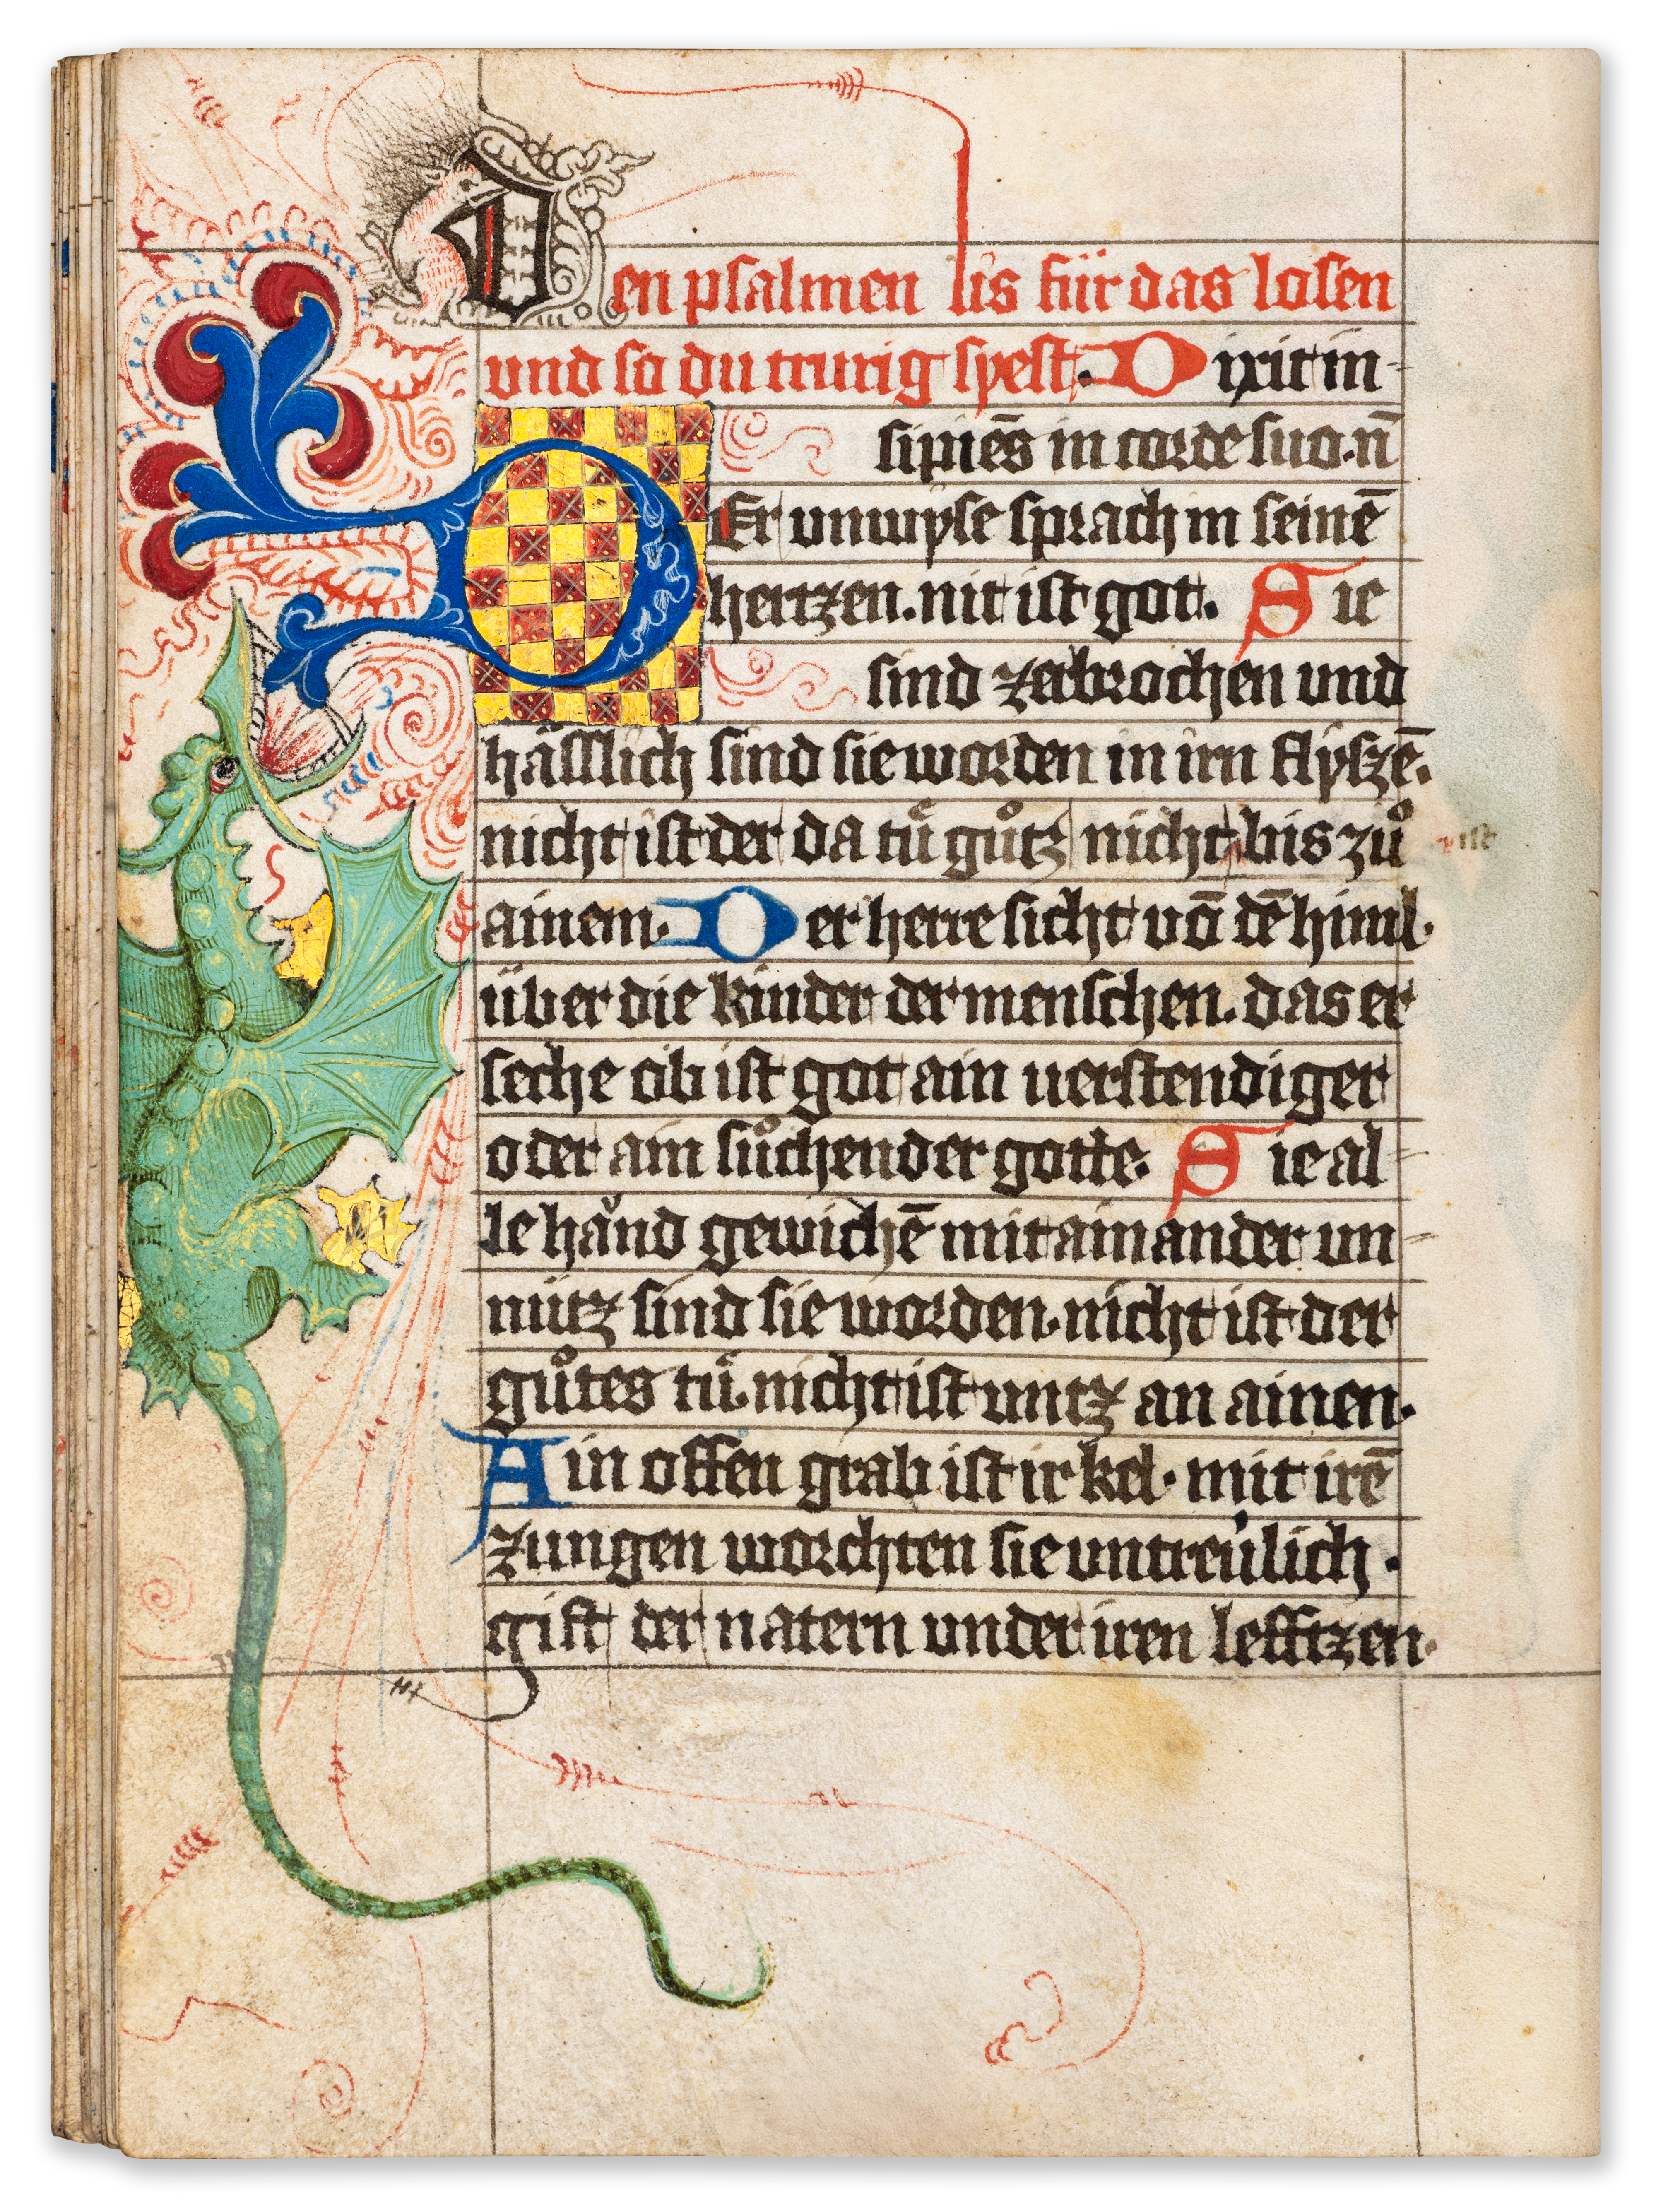 Den psalmen lis für das losen
und so du trurig syest. Dixit in-
sipiēs in corde suo. n̄
Er unwyse sprach in seinē
hertzen. nit ist got. Sie
sind zerbrochen und
hässlich sind sie worden in irn flyszē.
nicht ist der da tuͤ guͦtz nicht bis zuͦ
ainem. Der herre sicht vō dē himl.
über die kinder der menschen. das er
seche ob ist got ain verstendiger
oder ain suͦchender gotte. Sie al-
le hånd gewichē mit ainander un-
nütz sind sie worden. nicht ist der
guͦtes tuͤ. nicht ist untz an ainen.
Ain offen grab ist ir kel. mit irē
zungen worchten sie untreülich.
gift der natern under iren lefftzen.